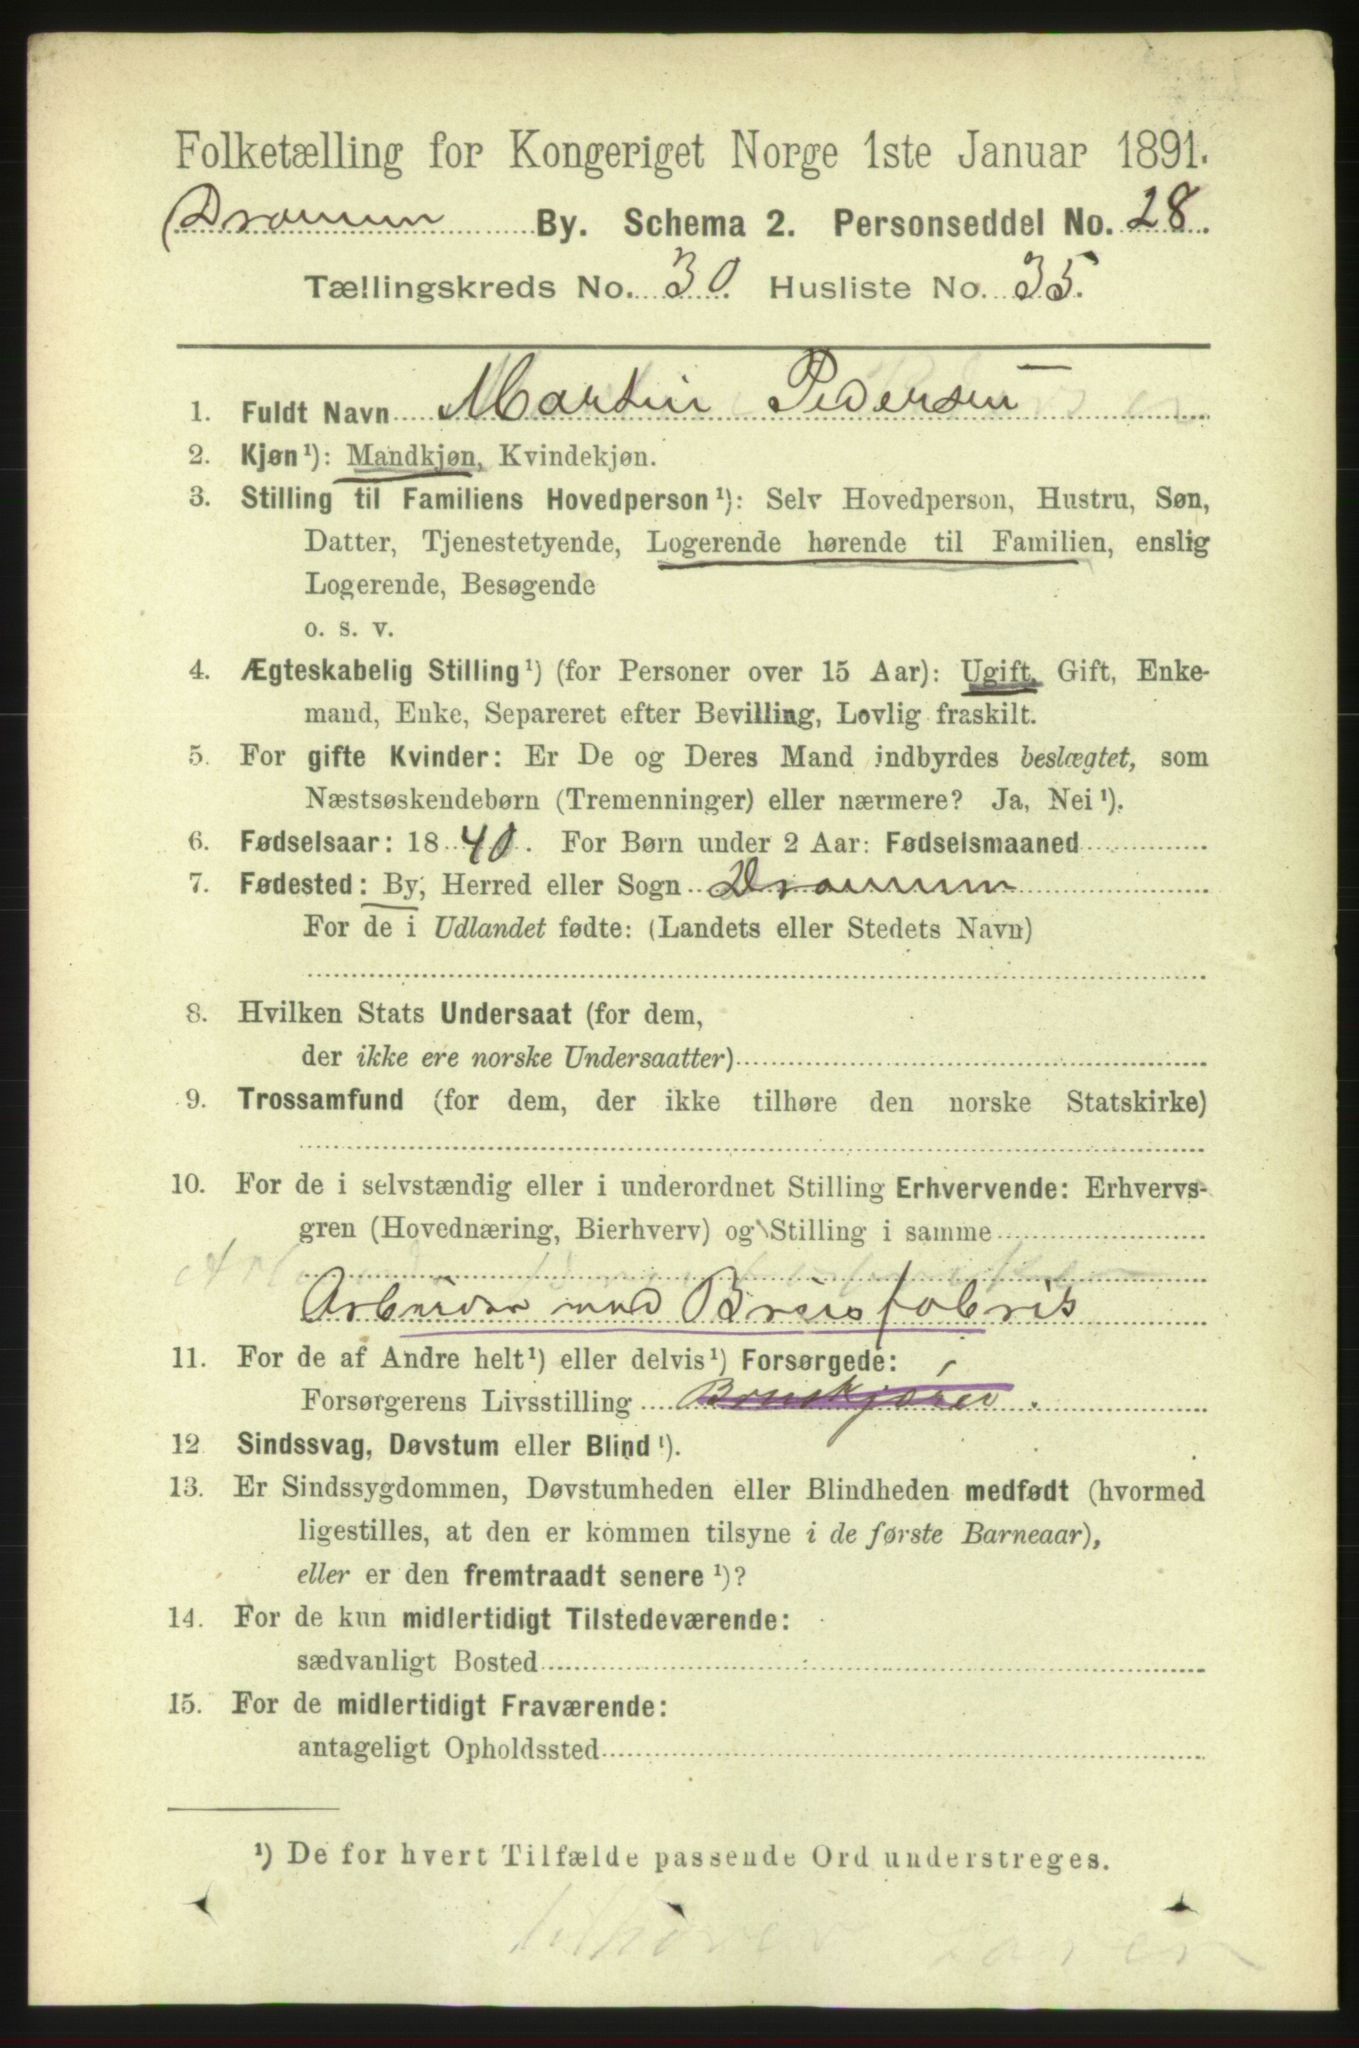 Folketælling for Kongeriget Norge 1ste Januar 1891.
Drammen By. Schema 2. Personseddel No. 28.
Tællingskreds No. 30. Husliste No. 35.
1. Fuldt Navn Martin Pedersen
2. Kjøn¹): Mandkjøn, Kvindekjøn.
3. Stilling til Familiens Hovedperson¹): Selv Hovedperson, Hustru, Søn,
Datter, Tjenestetyende, Logerende hørende til Familien, enslig
Logerende, Besøgende
o. s. v.
4. Ægteskabelig Stilling¹) (for Personer over 15 Aar): Ugift, Gift, Enke-
mand, Enke, Separeret efter Bevilling, Lovlig fraskilt.
5. For gifte Kvinder: Er De og Deres Mand indbyrdes beslægtet, som
Næstsøskendebørn (Tremenninger) eller nærmere? Ja, Nei¹).
6. Fødselsaar: 1840. For Børn under 2 Aar: Fødselsmaaned
7. Fødested: By, Herred eller Sogn Drammen
For de i Udlandet fødte: (Landets eller Stedets Navn)
8. Hvilken Stats Undersaat (for dem,
der ikke ere norske Undersaatter)
9. Trossamfund (for dem, der ikke tilhøre den norske Statskirke)
10. For de i selvstændig eller i underordnet Stilling Erhvervende: Erhvervs-
gren (Hovednæring, Bierhverv) og Stilling i samme
Arbeider med
11. For de af Andre helt¹) eller delvis¹) Forsørgede:
Forsørgerens Livsstilling
12 Sindssvag, Døvstum eller Blind¹).
13. Er Sindssygdommen, Døvstumheden eller Blindheden medfødt (hvormed
ligestilles, at den er kommen tilsyne i de første Barneaar),
eller er den fremtraadt senere¹)?
14. For de kun midlertidigt Tilstedeværende:
sædvanligt Bosted
15. For de midlertidigt Fraværende:
antageligt Opholdssted
¹) De for hvert Tilfælde passende Ord understreges.